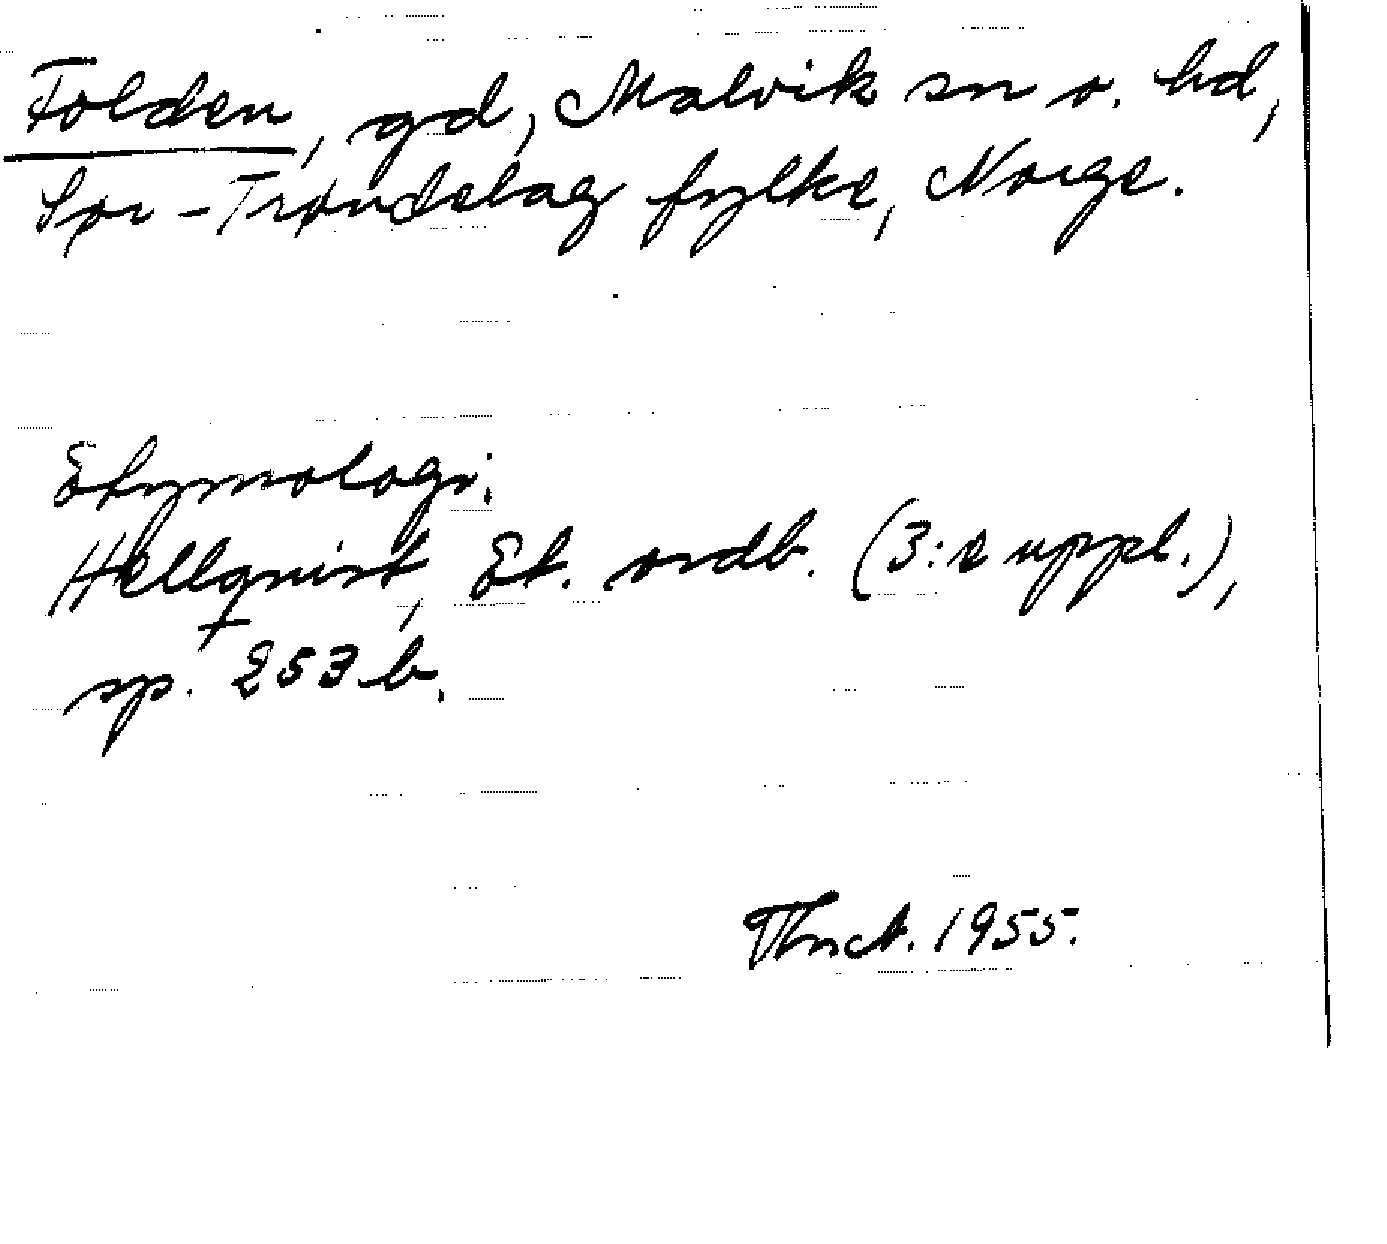 Folden, gd, Malvik sn o. hd,
Sør-Trøndelag fylke, Norge.
Etymologi:
Hellquist, Et. ordb. (3:e uppl.),
sp. 253 b.
1955.